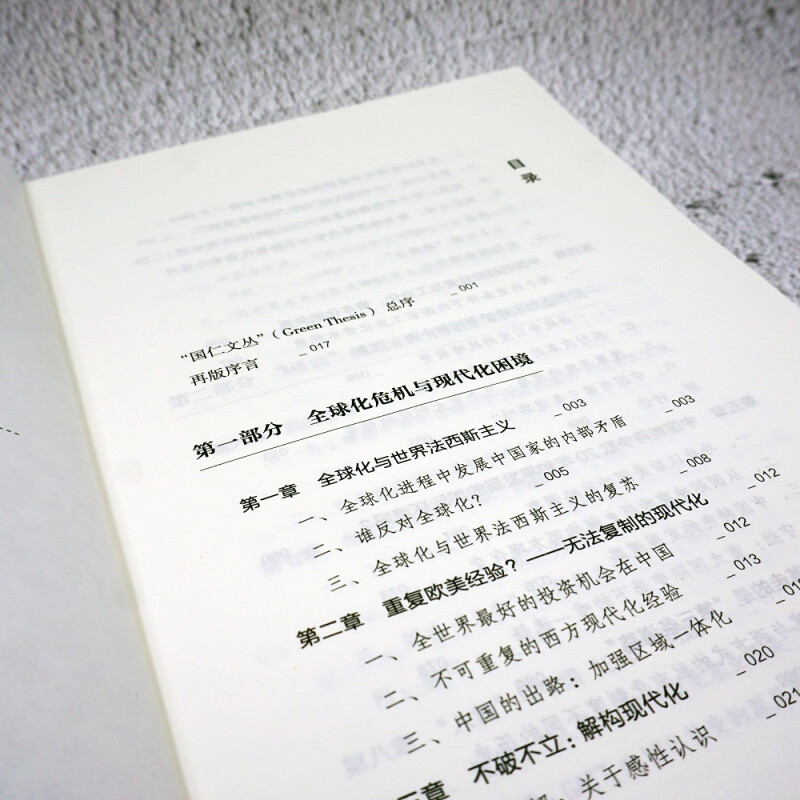 目录
“国仁文丛”（Green Thesis）总序 —001
再版序言 —017
第一部分 全球化危机与现代化困境
第一章 全球化与世界法西斯主义 —003
一、全球化进程中发展中国家的内部矛盾 —003
二、谁反对全球化？ —005
三、全球化与世界法西斯主义的复苏 —008
第二章 重复欧美经验？——无法复制的现代化 —012
一、全世界最好的投资机会在中国 —012
二、不可重复的西方现代化经验 —013
三、中国的出路：加强区域一体化
章 不破不立：解构现代化 —020
关于感性认识 —021